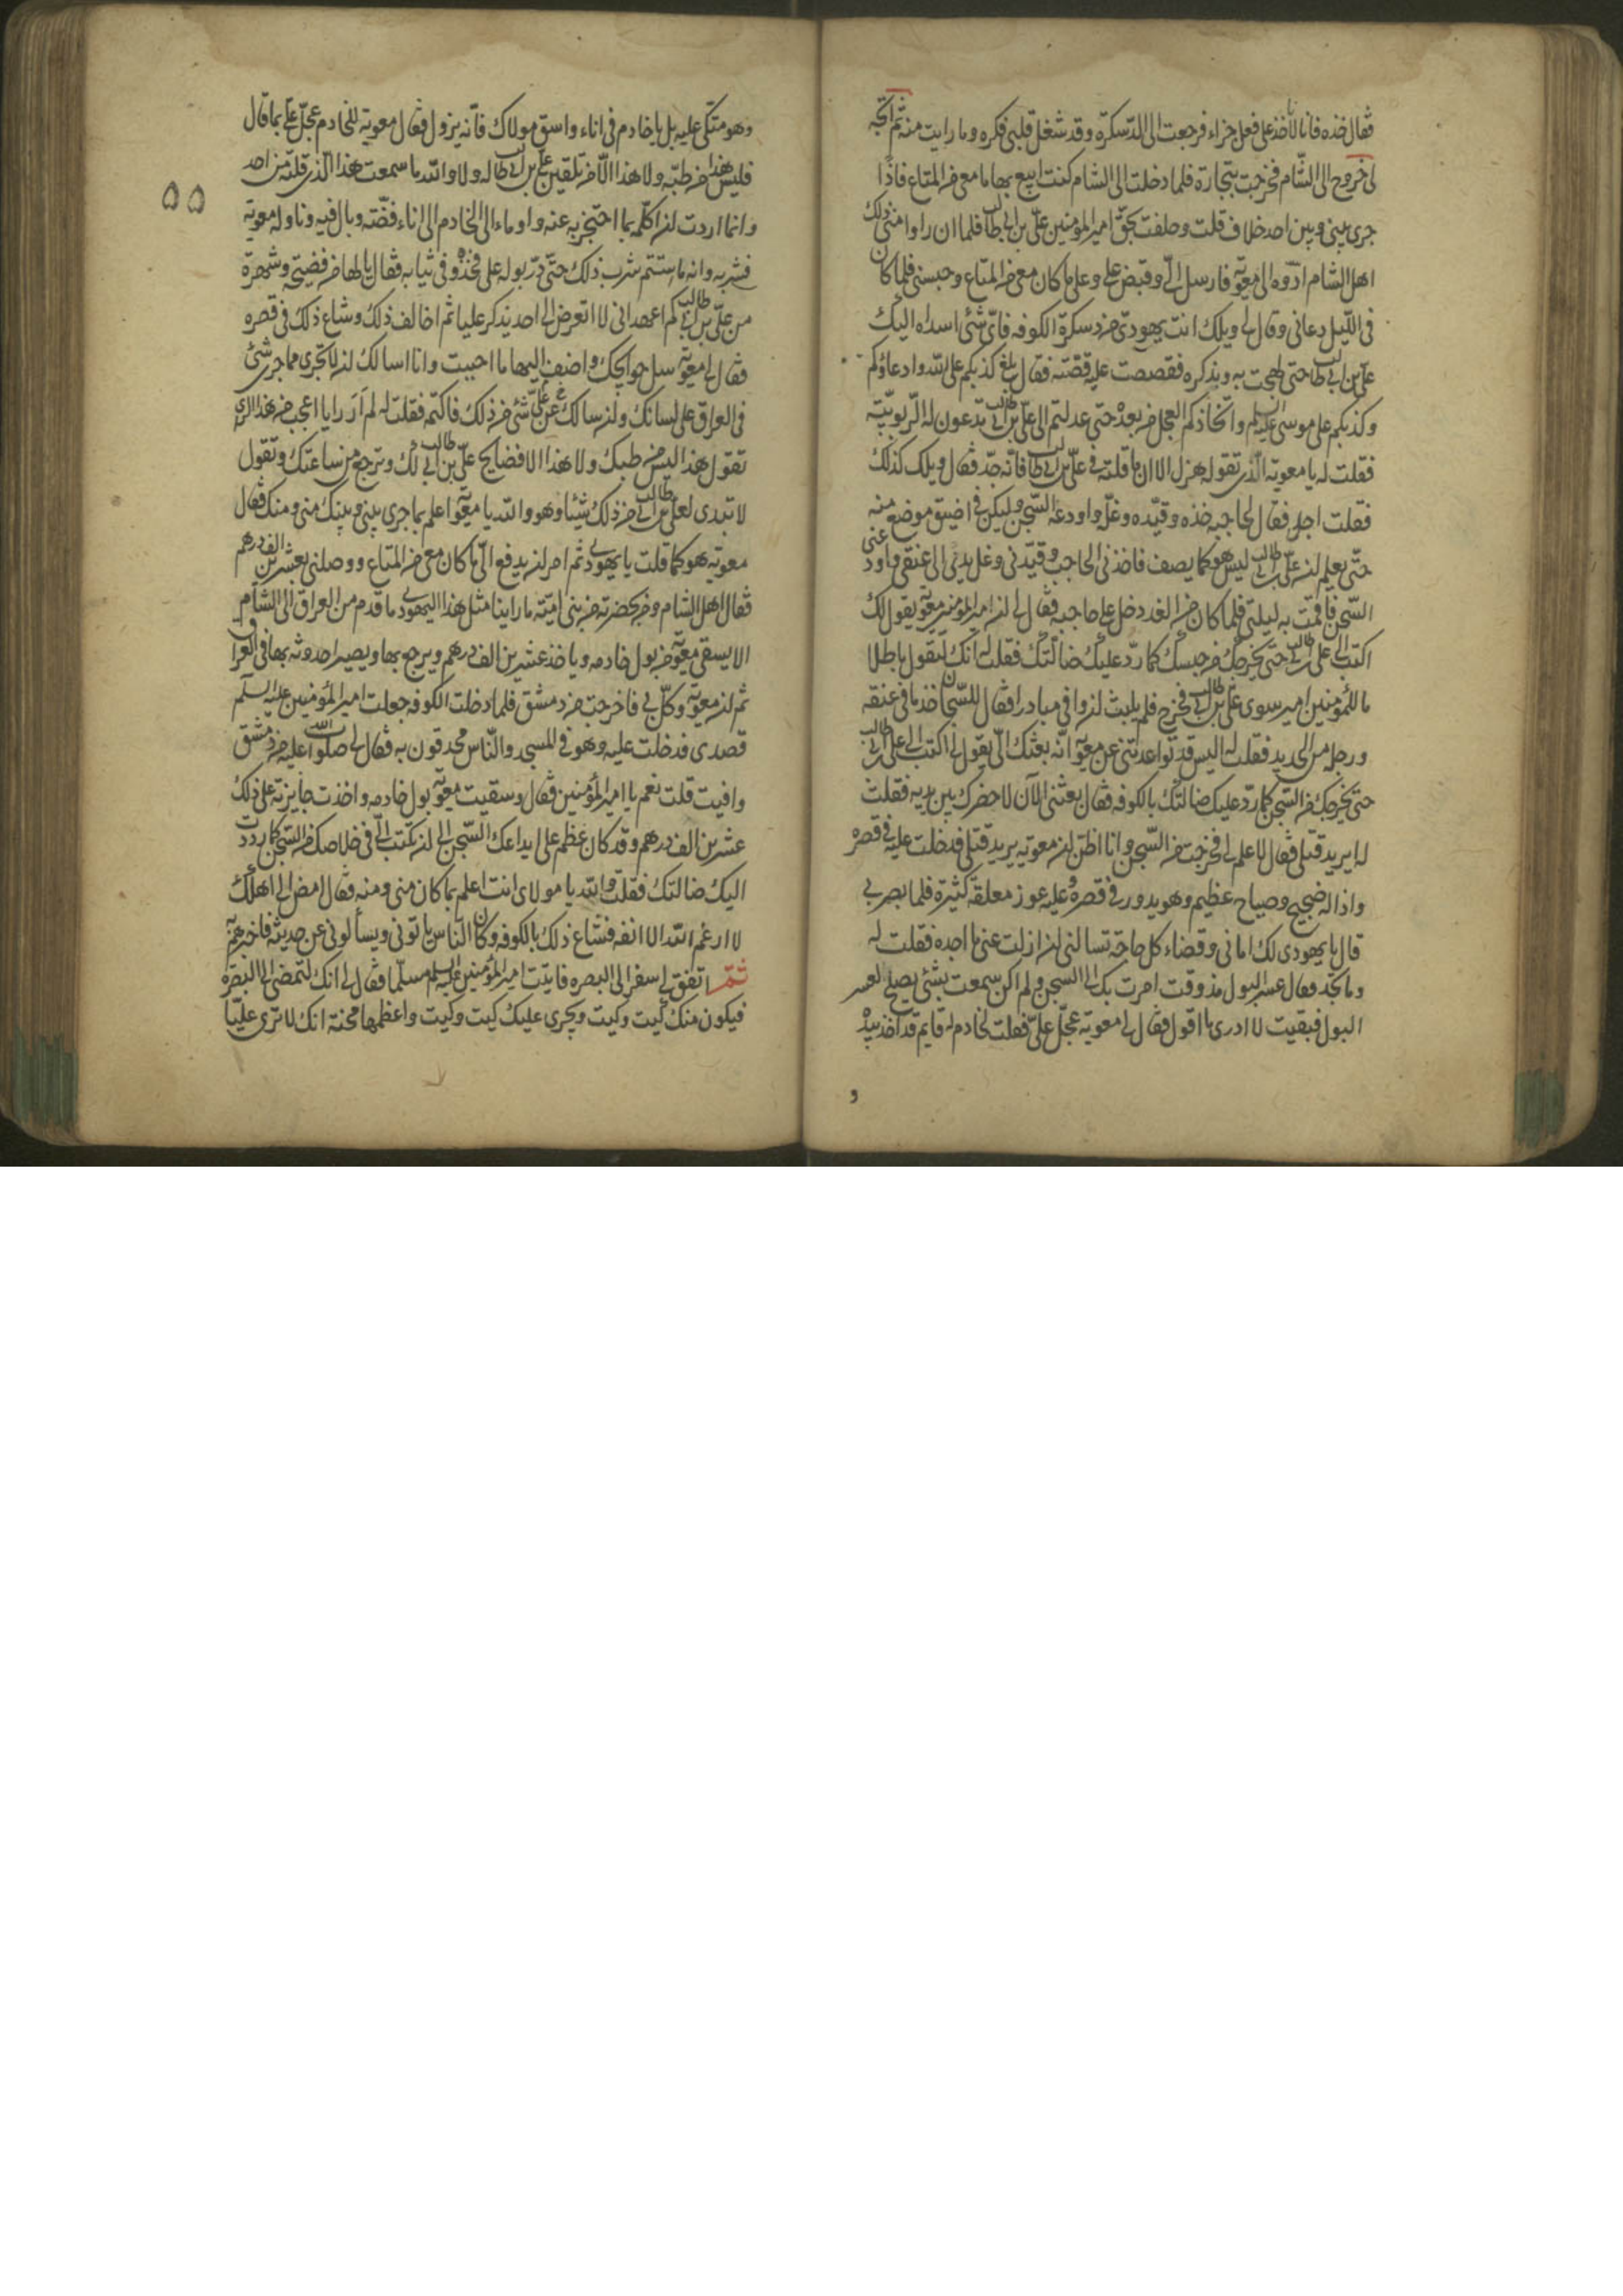 فقال خذه فانا لا ناخذ على فعل جزاء فرجعت الى الدسكرة وقد شغل قلبى فكره وما رايت منه ثم اتجه
لى خروج الى الشام فخرجت بتجارة فلما دخلت الى الشام كنت ابيع بها ما معى من المتاع فاذا
جرى بينى وبين احد خلاف قلت وحلفت بحق امير المؤمنين على بن ابى طالب فلما ان راوا منى ذلك
اهل الشام ادوه الى معوية فارسل الى وقبض على وعلى ما كان معى من المتاع وحبسنى فلما كان
فى الليل دعانى وقال لى ويلك انت يهودى من دسكرة الكوفه فاى شئ اسداه اليك
على بن ابى طالب حتى لهجت به وبذكره فقصصت عليه قصته فقال بلغ كذبكم على الله وادعاؤكم
وكذبكم على موسى عليه السلم واتخاذكم العجل من بعده حتى عدلتم الى على بن ابى طالب تدعون له الربوبية
فقلت له يا معوية الذى تقوله هزل الا ان ما قلته فى على بن ابى طالب فانه جد فقال ويلك كذلك
فقلت اجل فقال لحاجبه خذه وقيده وغله واودعه السجن وليكن فى اضيق موضع منه
حتى يعلم ان على بن ابى طالب ليس هو كما يصف فاخذنى الحاجب وقيدنى وغل يدى الى عنقى واودعنى
السجن فاقمت به ليلتى فلما كان من الغد دخل على حاجبه فقال لى ان امير المؤمنين معوية يقول لك
اكتب الى على بن ابى طالب حتى يخرجك من حبسك كما رد عليك ضالتك فقلت له انك لتقول باطلا
ما للمؤمنين امير سوى على بن ابى طالب فخرج فلم يلبث ان وافى مبادرا فقال للسجان خذ ما فى عنقه
ورجله من الحديد فقلت له اليس قد تواعدتنى عن معوية انه بعثك الى يقول لى اكتب الى على بن ابى طالب
حتى يخرجك من السجن كما رد عليك ضالتك بالكوفه فقال بعثنى الآن لاحضرك بين يديه فقلت
له ايريد قتلى فقال لا علم لى فخرجت من السجن وانا اظن ان معوية يريد قتلى فدخلت عليه فى قصره
واذا له ضجيج وصياح عظيم وهو يدور فى قصره وعليه عوز معلقة كثيرة فلما بصر بى
قال يا يهودى لك امانى وقضاء كل حاجة تسالنى ان ازلت عنى ما اجده فقلت له
وما تجد فقال عسر البول مذ وقت امرت بك الى السجن ولم اكن سمعت بشئ يصلح لعسر
البول فبقيت لا ادرى ما اقول فقال لى معوية عجل على فقلت لخادم له قايم قد اخذ بيده
و
٥٥
وهو متكى عليه بل يا خادم فى اناء واسق مولاك فانه يزول فقال معوية للخادم عجل على بما قال
فليس هذا من طبه ولا هذا الا من تلقين على بن ابى طالب له ولا والله ما سمعت هذا الذى قلته من احد
وانما اردت ان اكلمه بما احتجز به عنه واوماء الى الخادم الى اناء فضته وبال فيه وناوله معوية
فشربه وانه ما استتم شرب ذلك حتى در بوله على فخذه وفى ثيابه فقال يا لها من فضيحة وشهرة
من على بن ابى طالب كم اعهد انى لا اتعرض الى احد يذكر عليا ثم اخالف ذلك وشاع ذلك فى قصره
فقال لى معوية سل حوائجك واضف اليها ما احببت وانا اسالك ان لا تجرى مما جرى شئ
فى العراق على لسانك وان سالك عن على شئ من ذلك فاكتمه فقلت له لم ار رايا اعجب من هذا الراى
تقول هذا ليس من طبك ولا هذا الا فضايح على بن ابى طالب لك وترجع من ساعتك وتقول
لا تبدى لعلى بن ابى طالب من ذلك شيئا وهو والله يا معوية اعلم بما جرى بينى وبينك منى ومنك فقال
معوية هو كما قلت يا يهودى ثم امر ان يدفع الى ما كان معى من المتاع ووصلنى بعشرين الف درهم
فقال اهل الشام ومن بحضرته من بنى امية ما راينا مثل هذا اليهودى ما قدم من العراق الى الشام
الا يسقى معوية من بول خادمه وياخذ عشرين الف درهم ويرجع بها ويصير احدوثه بها فى العراق
ثم ان معوية وكل بى فاخرجت من دمشق فلما دخلت الكوفه جعلت امير المؤمنين عليه السلم
قصدى فدخلت عليه وهو فى المسجد والناس محدقون به فقال لى صلوات الله عليه من دمشق
وافيت قلت نعم يا امير المؤمنين فقال وسقيت معوية بول خادمه واخذت جايزته على ذلك
عشرين الف درهم وقد كان عظم على ايداعك السجن الى ان تكتب الى فى خلاصك من السجن كما رددت
اليك ضالتك فقلت والله يا مولاى انت اعلم بما كان منى ومنه فقال امض الى اهلك
لا ارغم الله الا انفه فشاع ذلك بالكوفه وكان الناس ياتونى ويسألونى عن حديثه فاخبرهم به
ثم اتفق لى سفر الى البصره فاتيت امير المؤمنين عليه السلم مسلما فقال لى انك لتمضى الى البصره
فيكون منك كيت وكيت ويجرى عليك كيت وكيت واعظمها محنة انك لا ترى عليا